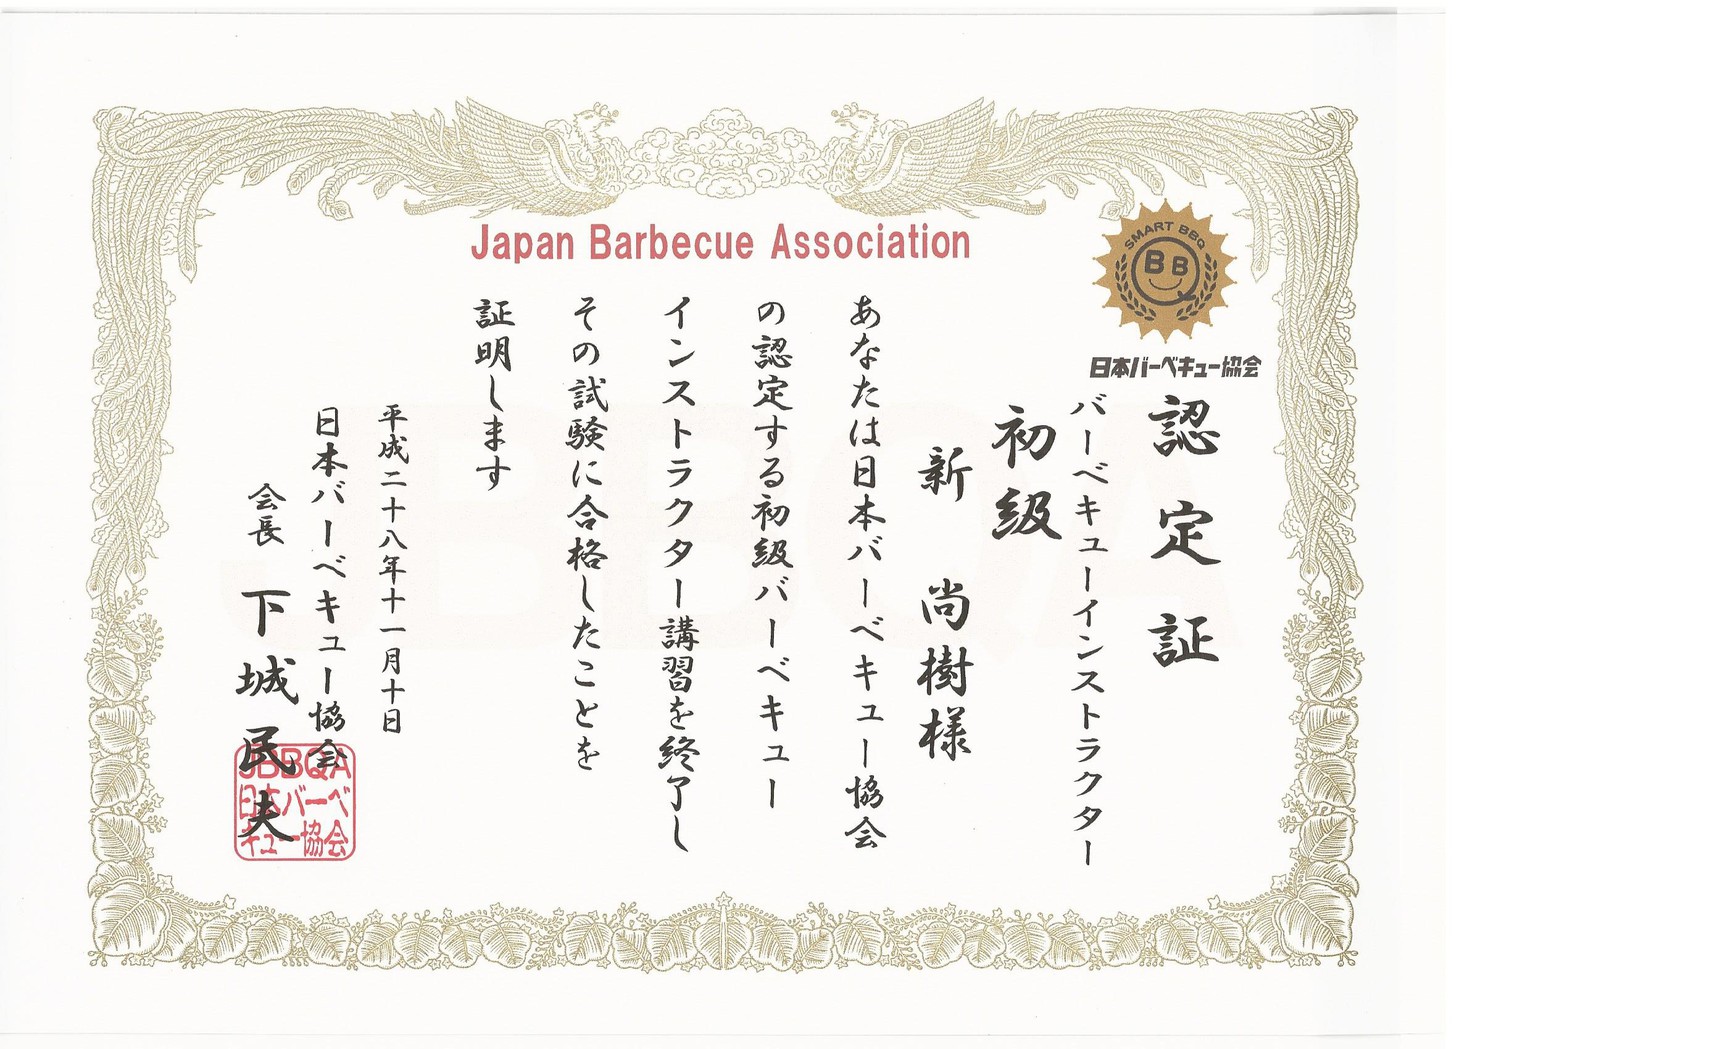 Japan Barbecue Association
SMART BBQ
BBQ
日本バーベキュー協会
認定証
バーベキューインストラクター
初級
新 尚樹様
あなたは日本バーベキュー協会
の認定する初級バーベキュー
インストラクター講習を終了し
その試験に合格したことを
証明します
平成二十八年十一月十日
日本バーベキュー協会
会長 下城民夫
JBBQA
日本バーベ
キュー協会
JBBQA